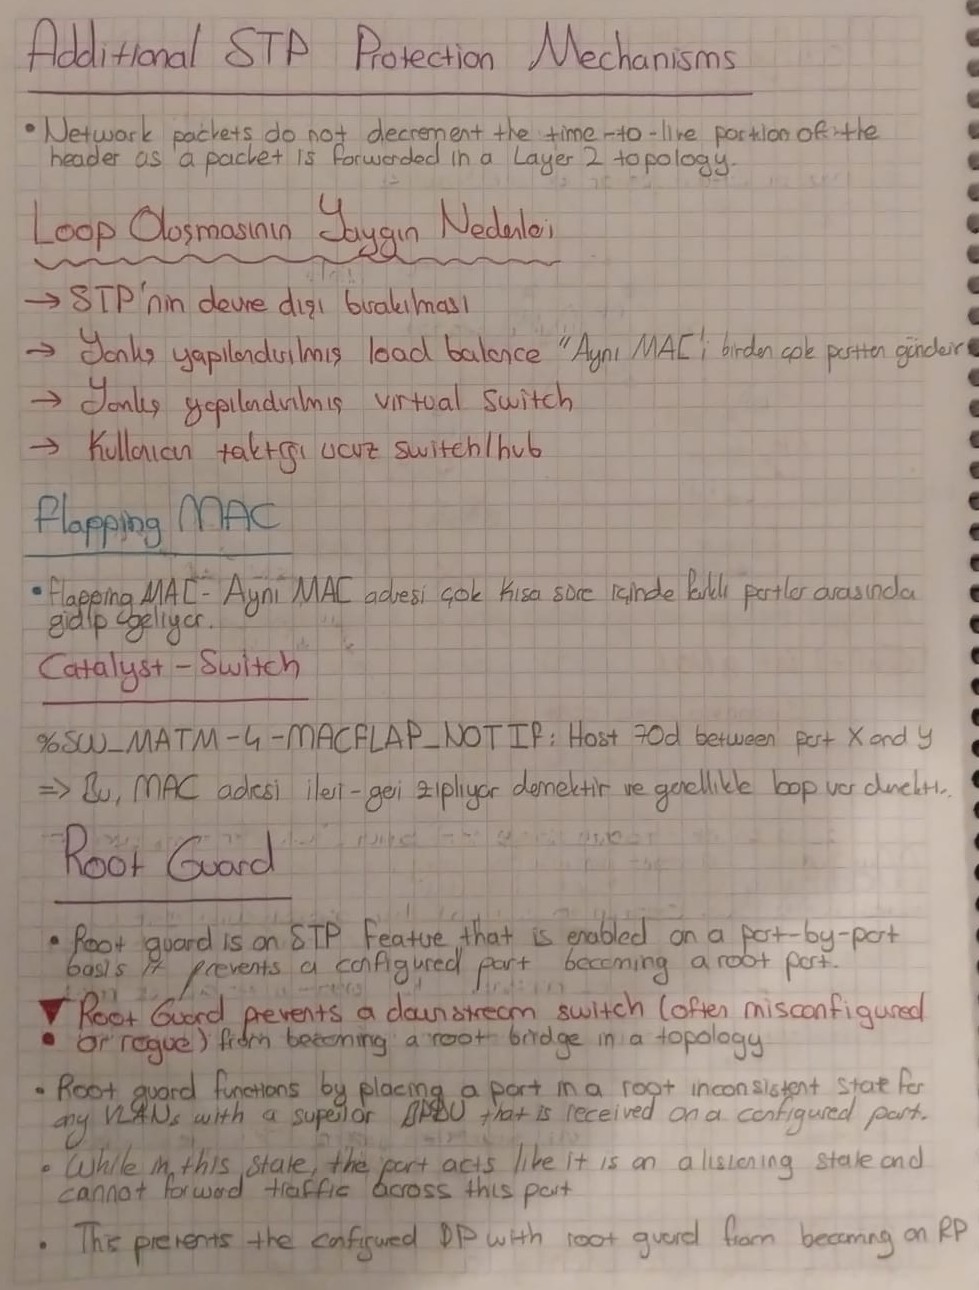 Additional STP Protection Mechanisms
• Network packets do not decrement the time-to-live portion of the
header as a packet is forwarded in a Layer 2 topology.
Loop Oluşmasının Yaygın Nedenleri
→ STP'nin devre dışı bırakılması
→ Yanlış yapılandırılmış load balance "Aynı MAC'i birden çok porttan gönderir
→ Yanlış yapılandırılmış virtual switch
→ Kullanıcın taktığı ucuz switch/hub
Flapping MAC
• Flapping MAC = Aynı MAC adresi çok kısa süre içinde farklı portlar arasında
gidip geliyor.
Catalyst - Switch
%SW_MATM-4-MACFLAP_NOTIF: Host between port X and Y
=> Bu, MAC adresi ileri-geri zıplıyor demektir ve genellikle loop var demektir.
Root Guard
• Root guard is an STP Feature that is enabled on a port-by-port
basis It prevents a configured port becoming a root port.
▼ Root Guard prevents a downstream switch (often misconfigured
• or rogue) from becoming a root bridge in a topology
• Root guard functions by placing a port in a root inconsistent state for
any VLANs with a superior BPDU that is received on a configured port.
• While in this state, the port acts like it is on a listening state and
cannot forward traffic across this port
• This prevents the configured DP with root guard from becoming an RP